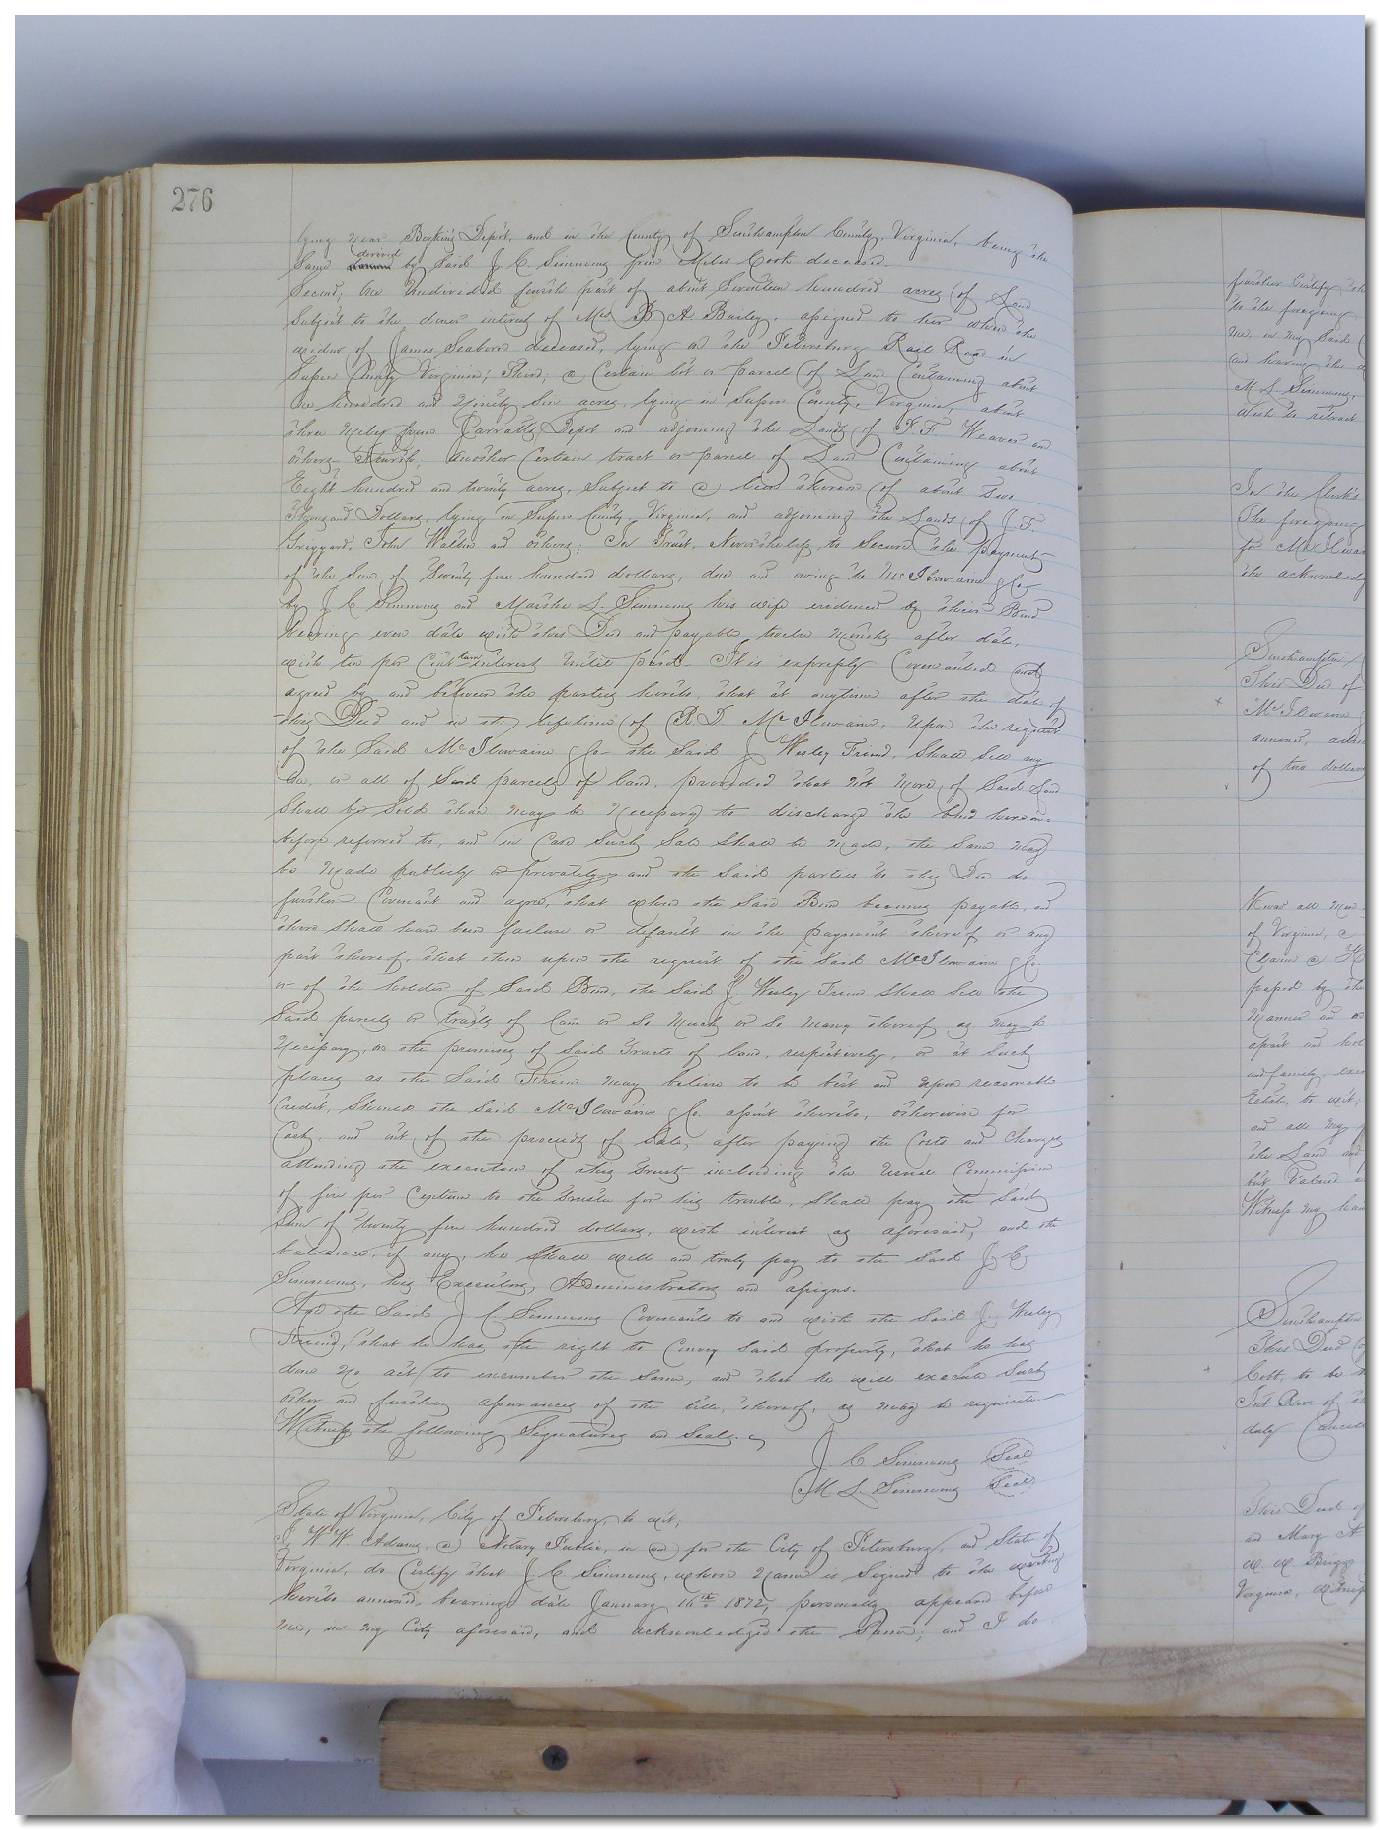 276
lying near Boykins Depot, and in the County of Southampton County, Virginia, being the
same derived by said J. C. Simmons from Miles Cook deceased.
Second, One undivided fourth part of about Seventeen hundred acres of Land
Subject to the dower interest of Mrs B. A. Bailey, assigned to her when the
widow of James Seaborn deceased, lying on the Petersburg Rail Road in
Sussex County Virginia; Third; a Certain lot or parcel of Land Containing about
One hundred and Ninety Six acres, lying in Sussex County, Virginia, about
three miles from Jarratts Depot and adjoining the Lands of N. F. Weaver and
others— Fourth, another Certain tract or parcel of Land Containing about
Eight hundred and twenty acres, Subject to a lien thereon of about Two
Thousand Dollars, lying in Sussex County, Virginia, and adjoining the Lands of J. F.
Griggard, John Walker and others; In Trust, Nevertheless, to Secure the payment
of the Sum of Twenty five hundred dollars, due and owing to McIlwaine & Co
by J. C. Simmons and Martha L. Simmons his wife evidenced by their Bond
bearing even date with this Deed and payable twelve months after date,
with ten per Centum interest until paid— It is expressly Covenanted and
agreed by and between the parties hereto, that at anytime after the date of
this Deed and in the lifetime of R. D. McIlwaine, Upon the request
of the Said McIlwaine & Co— the Said J Wesley Friend, Shall Sell any
One, or all of Said parcels of land, provided that not More of Said Land
Shall be Sold than may be Necessary to discharge the bond herein-
before referred to, and in Case Such Sale Shall be Made, the Same May
be Made publicly or privately— and the Said parties to this Deed do
further Covenant and agree, that when the Said Bond becomes payable, and
there Shall have been failure or default in the payment thereof or any
part thereof, that then upon the request of the Said McIlwaine & Co.
or of the holder of Said Bond, the Said J. Wesley Friend Shall Sell the
Said parcels or tracts of land or So Much or So many thereof as may be
Necessary, on the premises of Said Tracts of land, respectively, or at Such
places as the Said Friend may believe to be best and upon reasonable
Credit, Should the Said McIlwaine & Co. assent thereto, otherwise for
Cash, and out of the proceeds of Sale, after paying the Costs and Charges
attending the execution of this Trust including the usual Commission
of five per Centum to the Trustee for his trouble, Shall pay the Said
Sum of twenty five hundred dollars, with interest as aforesaid, and the
balance, if any, he Shall well and truly pay to the Said J. C.
Simmons, his Executors, Administrators and assigns.
And the Said J. C. Simmons Covenants to and with the Said J. Wesley
Friend, that he has the right to Convey Said property, that he has
done No act to encumber the Same, and that he will execute Such
other and further assurances of the title thereof, as may be requisite
Witness the following Signatures and Seals.
J. C Simmons Seal
M L. Simmons Seal
State of Virginia, City of Petersburg, to wit,
I, W. W. Adams, a Notary Public, in and for the City of Petersburg, and State of
Virginia, do Certify that J. C Simmons, whose Name is Signed to the writing
hereto annexed, bearing date January 16th 1872, personally appeared before
me, in my City aforesaid, and acknowledged the Same; and I do
further Certify
to the foregoing
me, in my said
and having the
M. L. Simmons,
wish to retract
In the Clerk's
The foregoing
to McIlwaine
the acknowledg
Southampton
This Deed of
McIlwaine
annexed,
of two dollars
Know all Men
of Virginia,
Claim a
passed by the
Manner and
apart and
and family,
Estate, to wit:
on all my
the Land and
but Valued
Witness my han
Southampton
This Deed
Cobb, to be
duly
This Deed of
and Mary A
W. W. Briggs
Virginia, Witness